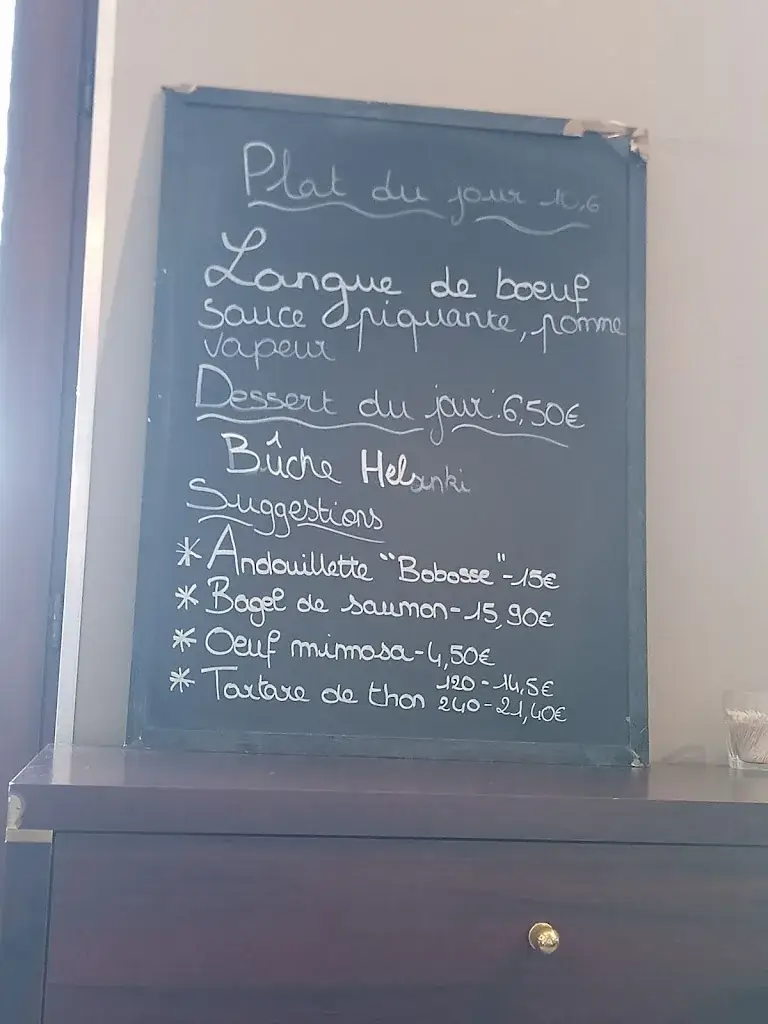 Plat du jour
Langue de boeuf
sauce piquante, pomme
vapeur
Dessert du jour: 6,50€
Bûche Helsinki
Suggestions
* Andouillette "Bobosse" - 15€
* Bagel de saumon - 15,90€
* Oeuf mimosa - 4,50€
* Tartare de thon 120 - 14,5€
240 - 21,40€